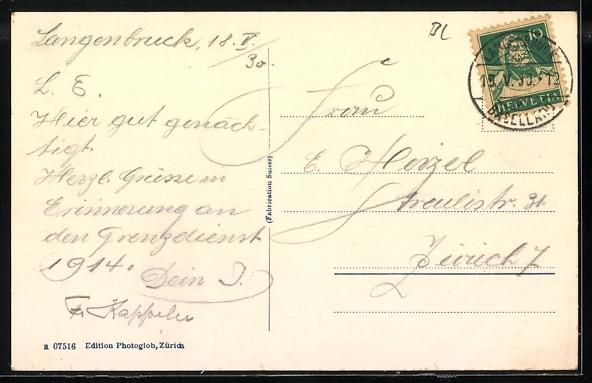 Langenbruck, 18. V.
30.
L. E.
Hier gut genäch-
tigt.
Herzl. Grüsse in
Erinnerung an
den Grenzdienst
1914. Dein J.
Fr. Kappeler
BL
10
HELVETIA
19. V. 30. - 12
(BASELLAND)
Frau
E. Hirzel
Freulistr. 31
Zürich 7
(Fabrication Suisse)
a 07516 Edition Photoglob, Zürich